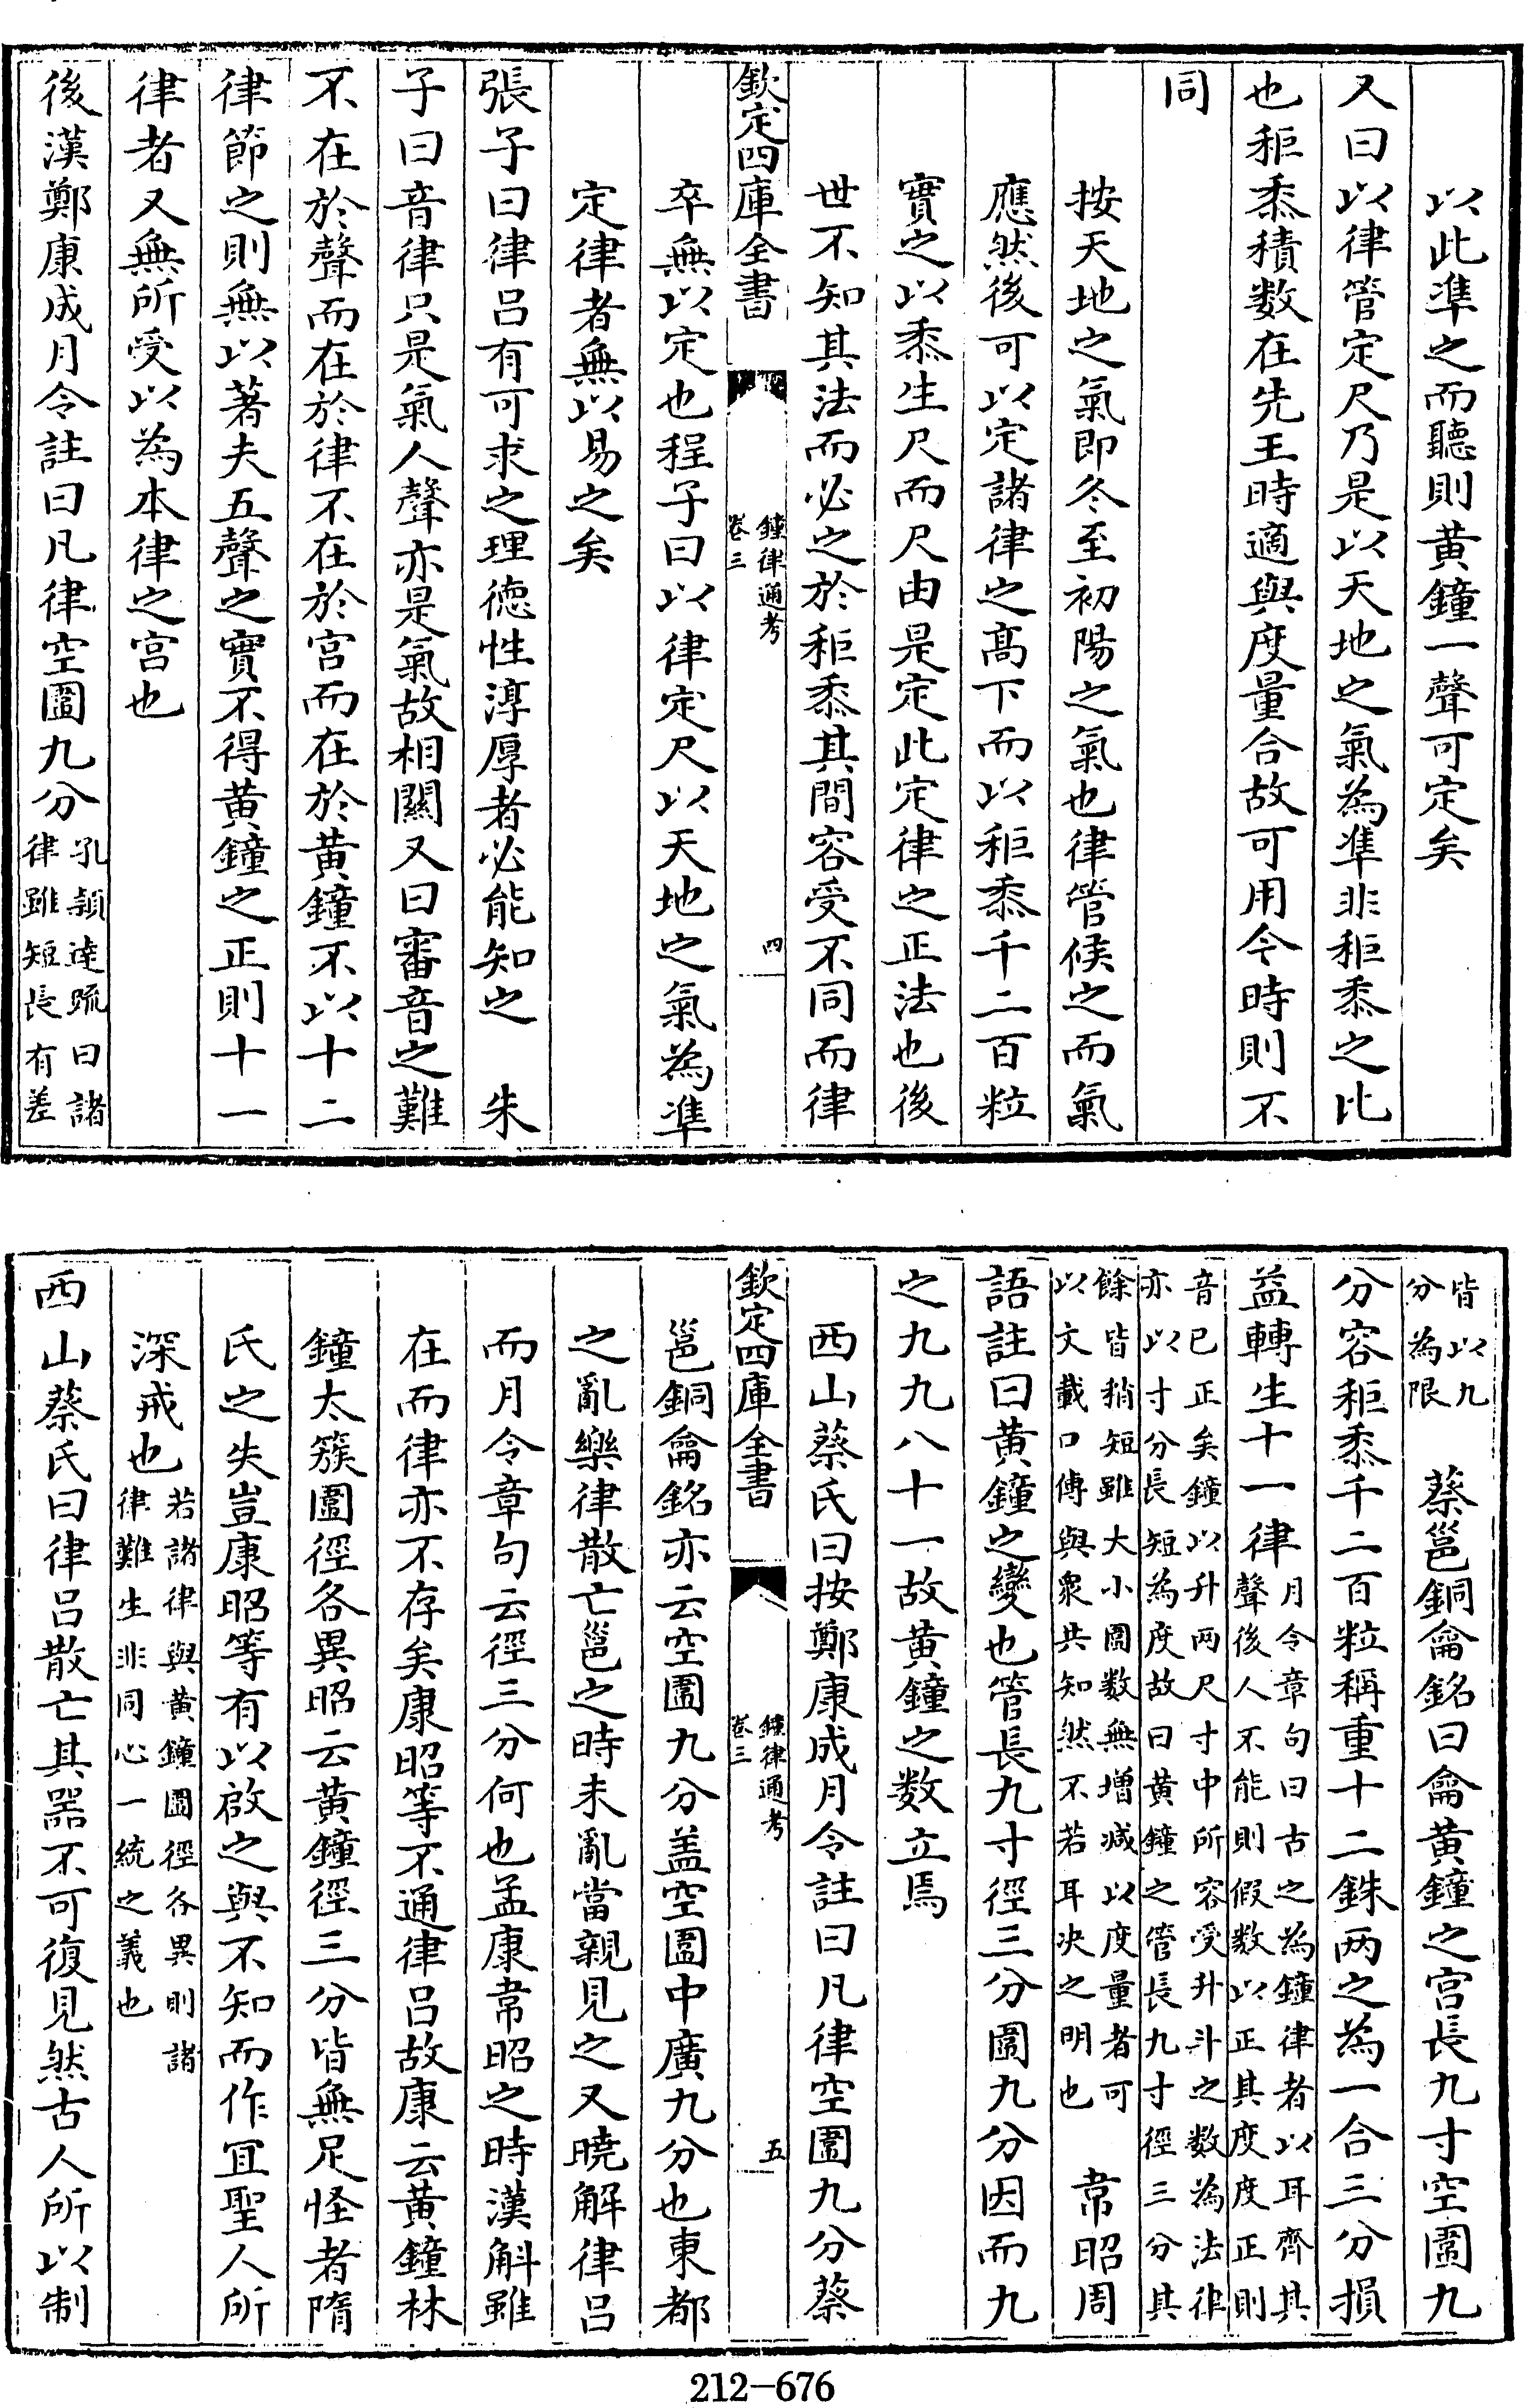 以此凖之而聽則黄鐘一聲可定矣
又曰以律管定尺乃是以天地之氣為凖非秬黍之比
也秬黍積数在先王時適與度量合故可用今時則不
同
按天地之氣即冬至初陽之氣也律管候之而氣
應然後可以定諸律之髙下而以秬黍千二百粒
實之以黍生尺而尺由是定此定律之正法也後
世不知其法而必之於秬黍其間容受不同而律
欽定四庫全書
鐘律通考
卷三
四
卒無以定也程子曰以律定尺以天地之氣為凖
定律者無以易之矣
張子曰律吕有可求之理徳性淳厚者必能知之　朱
子曰音律只是氣人聲亦是氣故相闗又曰審音之難
不在於聲而在於律不在於宫而在於黄鐘不以十二
律節之則無以著夫五聲之實不得黄鐘之正則十一
律者又無所受以為本律之宫也
後漢鄭康成月令註曰凡律空圍九分孔頴逹疏曰諸
律雖短長有差
皆以九
分為限　蔡邕銅龠銘曰龠黄鐘之宫長九寸空圍九
分容秬黍千二百粒稱重十二銖两之為一合三分損
益轉生十一律月令章句曰古之為鐘律者以耳齊其
聲後人不能則假数以正其度度正則
音已正矣鐘以升两尺寸中所容受升斗之数為法律
亦以寸分長短為度故曰黄鐘之管長九寸徑三分其
餘皆稍短雖大小圍数無増减以度量者可
以文載口傳與衆共知然不若耳决之明也　韋昭周
語註曰黄鐘之變也管長九寸徑三分圍九分因而九
之九九八十一故黄鐘之数立焉
西山蔡氏曰按鄭康成月令註曰凡律空圍九分蔡
欽定四庫全書
鐘律通考
卷三
五
邕銅龠銘亦云空圍九分盖空圍中廣九分也東都
之亂樂律散亡邕之時未亂當親見之又曉解律吕
而月令章句云徑三分何也孟康韋昭之時漢斛雖
在而律亦不存矣康昭等不通律吕故康云黄鐘林
鐘太簇圍徑各異昭云黄鐘徑三分皆無足怪者隋
氏之失豈康昭等有以啟之與不知而作宜聖人所
深戒也若諸律與黄鐘圍徑各異則諸
律難生非同心一統之義也
西山蔡氏曰律吕散亡其器不可復見然古人所以制
212-676